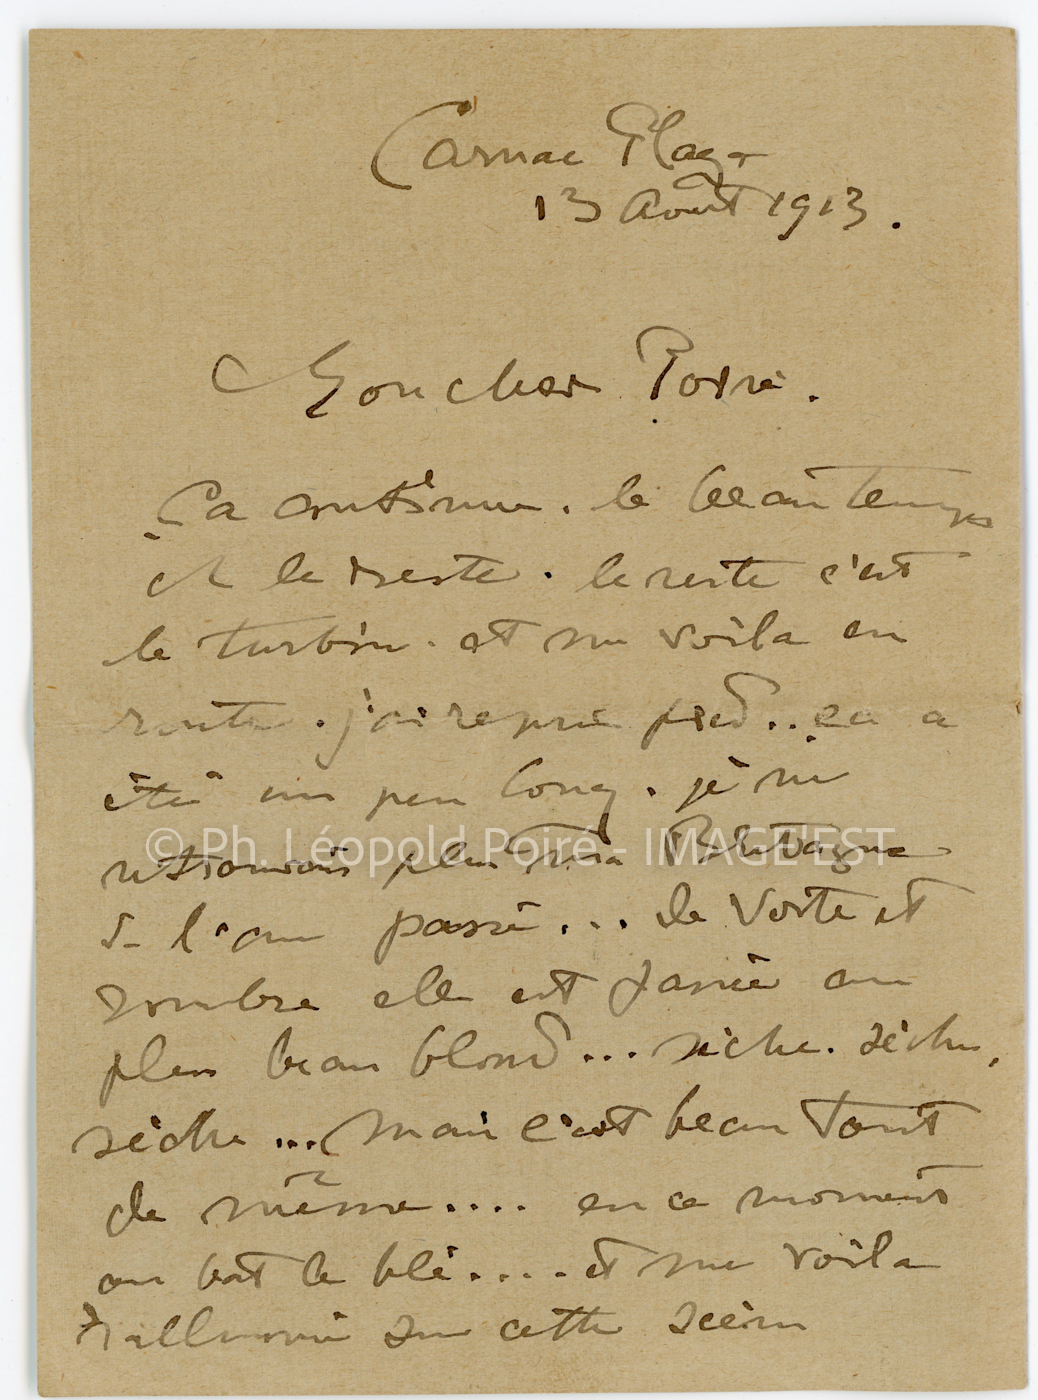 Carnac Plage
13 Août 1913.
Mon cher Poiré.
Ça continue. le beau temps
et le reste. le reste c'est
le turbin. et me voilà en
route. j'ai repris pied.. ça a
été un peu long. je ne
retrouvais plus ma Bretagne
© Ph. Léopold Poiré - IMAGE'EST
de l'an passé... de verte et
sombre elle est passée au
plus beau blond... sèche. sèche,
sèche... mais c'est beau tout
de même.... en ce moment
on bat le blé.... et me voilà
rallumé sur cette scène